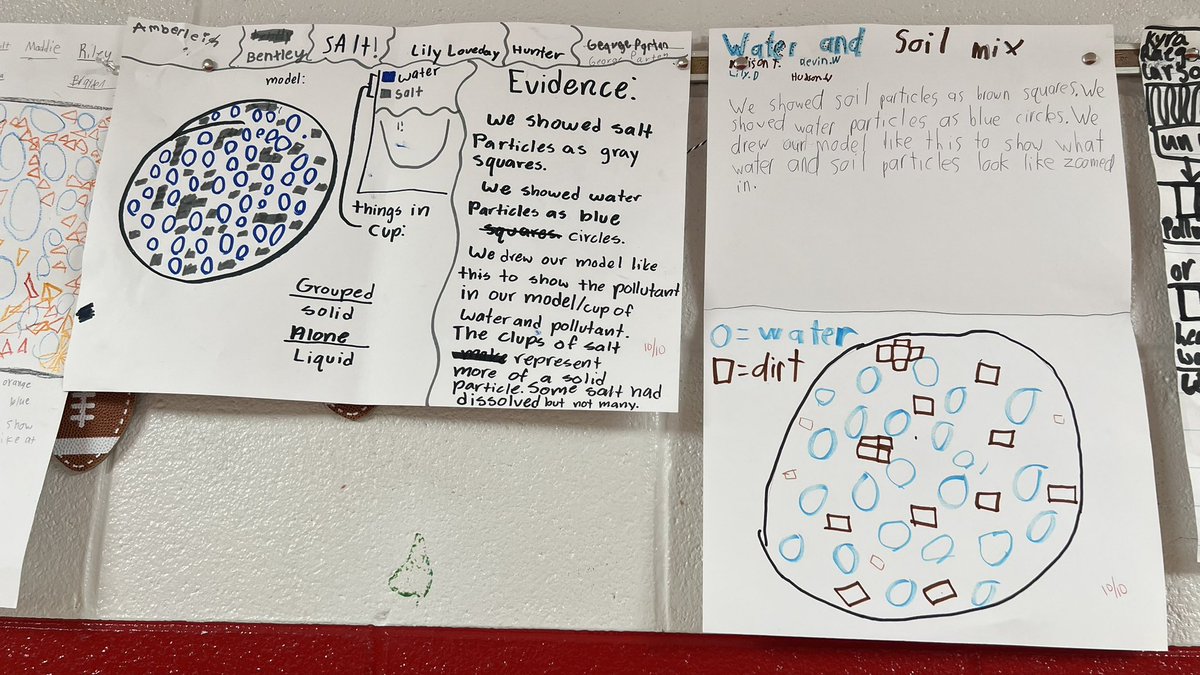 Maddie
Riley
orange
blue
show
like at
Amberleigh
Bentley
SAlt!
Lily Loveday
Hunter
George Partan
George Partan
model:
water
salt
things in
cup:
Grouped
solid
Alone
Liquid
Evidence:
we showed salt
Particles as gray
squares.
We showed water
Particles as blue
squares. circles.
We drew our model like
this to show the pollutant
in our model/cup of
water and pollutant.
The clups of salt
represent
more of a solid
particle. Some salt had
dissolved but not many.
10/10
Water and Soil mix
Devin.W
Lily.D Hudson.W
We showed soil particles as brown squares. We
showed water particles as blue circles. We
drew our model like this to show what
water and soil particles look like zoomed
in.
O=water
□=dirt
10/10
Kyra
un
or